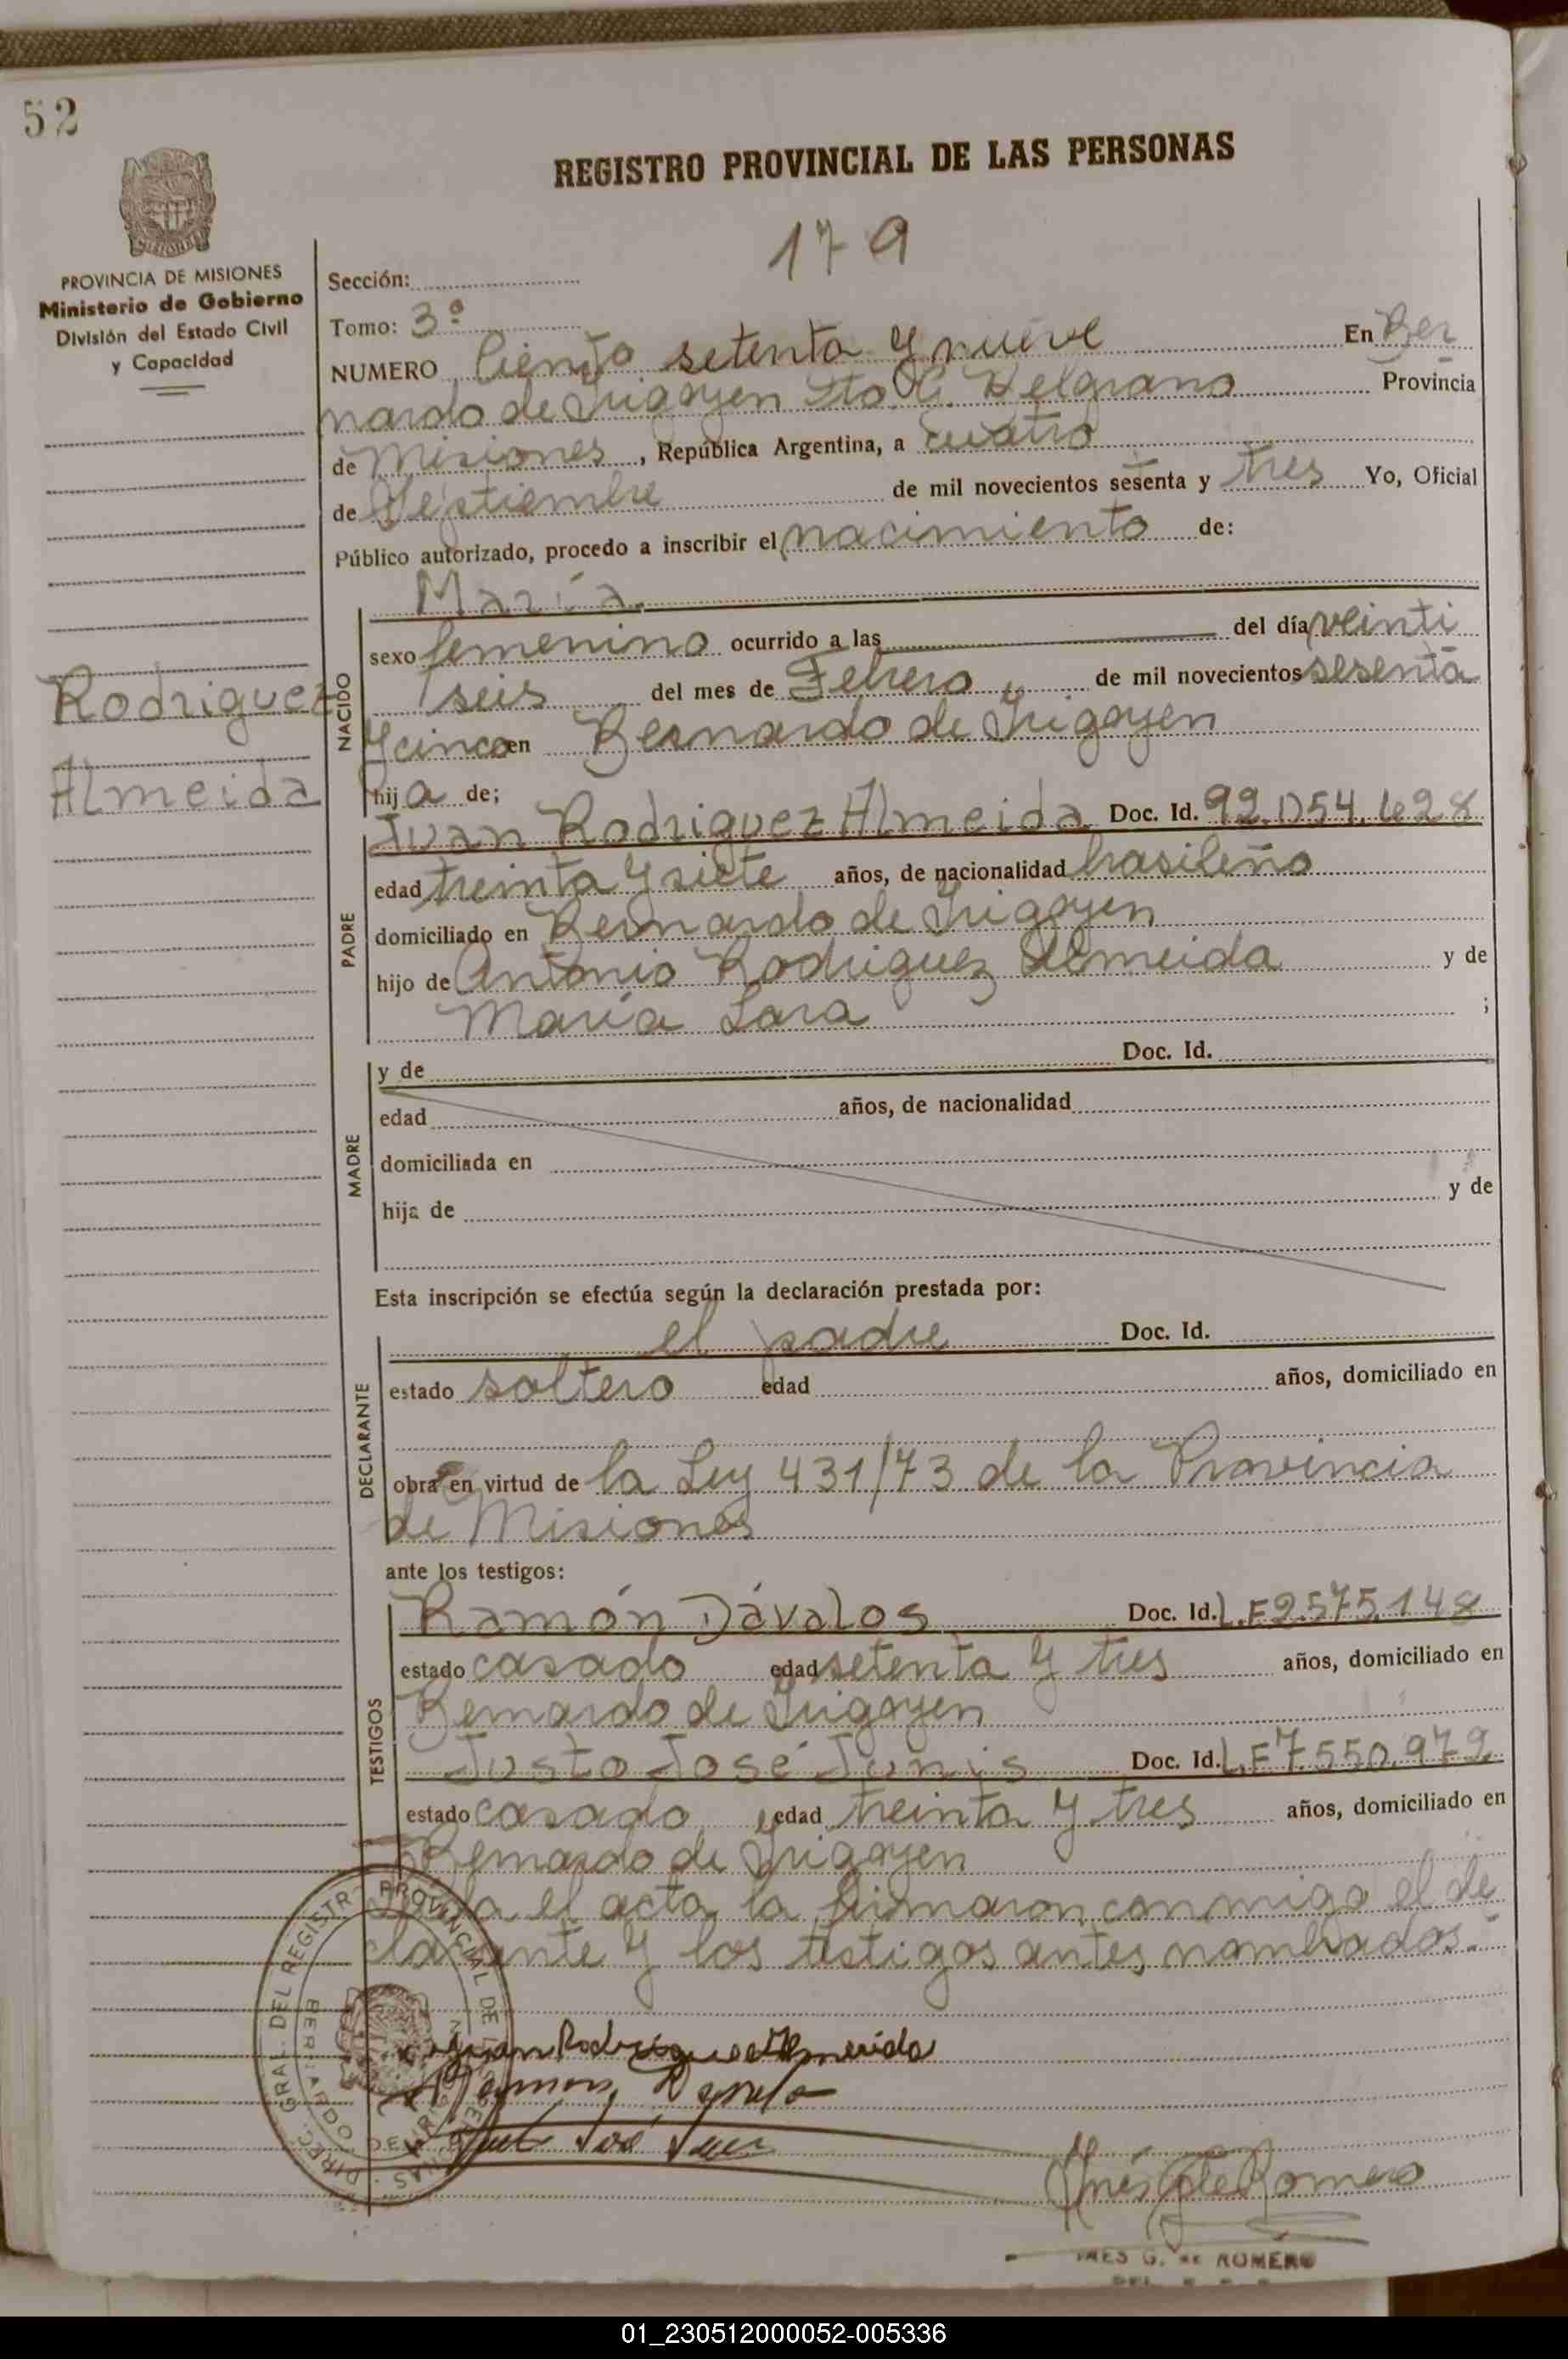 52
REGISTRO PROVINCIAL DE LAS PERSONAS
179
PROVINCIA DE MISIONES
Ministerio de Gobierno
División del Estado Civil
y Capacidad
Sección:
Tomo: 3º
NUMERO Ciento setenta y nueve En Ber
nardo de Irigoyen Dto. G. Belgrano Provincia
de Misiones, República Argentina, a cuatro
de Septiembre de mil novecientos sesenta y tres Yo, Oficial
Público autorizado, procedo a inscribir el nacimiento de:
María
sexo femenino ocurrido a las del día veinti
seis del mes de Febrero de mil novecientos sesenta
y cinco en Bernardo de Irigoyen
Rodriguez
Almeida
NACIDO
hija de;
Juan Rodriguez Almeida Doc. Id. 92.054.628
edad treinta y siete años, de nacionalidad brasileño
domiciliado en Bernardo de Irigoyen
hijo de Antonio Rodriguez Almeida y de
María Lara ;
PADRE
y de Doc. Id.
edad años, de nacionalidad
domiciliada en
hija de y de
MADRE
Esta inscripción se efectúa según la declaración prestada por:
el padre Doc. Id.
estado soltero edad años, domiciliado en
obra en virtud de la Ley 431/73 de la Provincia
de Misiones
DECLARANTE
ante los testigos:
Ramón Dávalos Doc. Id. L.E 2.575.148
estado casado edad setenta y tres años, domiciliado en
Bernardo de Irigoyen
Justo José Junis Doc. Id. L.E 7.550.972
estado casado edad treinta y tres años, domiciliado en
Bernardo de Irigoyen
TESTIGOS
Leída el acta la firmaron conmigo el de
clarante y los testigos antes nombrados.-
Juan Rodriguez Almeida
Inés G de Romero
INES G. de ROMERO
DIREC. GRAL. DEL REGISTRO PROVINCIAL DE LAS PERSONAS
01_230512000052-005336